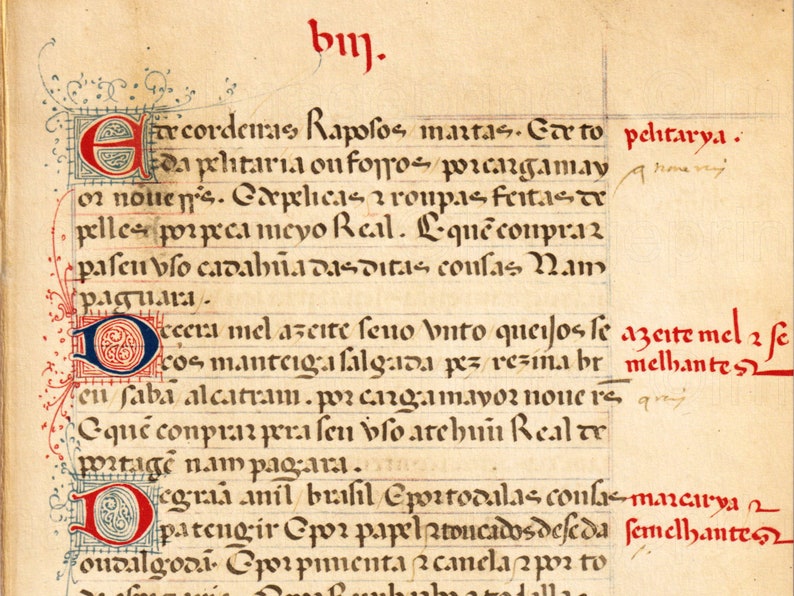 biij.
E de cordeiras Raposos / martas. E de to
da pelitaria ou forros / por carga may
or noue rrs̃. E de pelicas ⁊ roupas feitas de
pelles / por peca meyo Real. E quẽ conprar
pa seu vso cada hũa das ditas cousas Nam
paguara.
De cera mel azeite seuo vnto queijos se
cos manteiga salgada pez / rezina br
eu / sabã alcatram. por carga mayor noue rs̃
E quẽ conprar pera seu vso ate hũũ Real de
portagẽ nam pagara.
De graã anil / brasil / E por todalas cousas
pa tengir E por papel ⁊ toucados de seda
ou dalgodã. E por pimenta ⁊ canela ⁊ por to
pelitarya.
q noue rrj
azeite mel ⁊ se
melhantes
marcarya ⁊
semelhantes